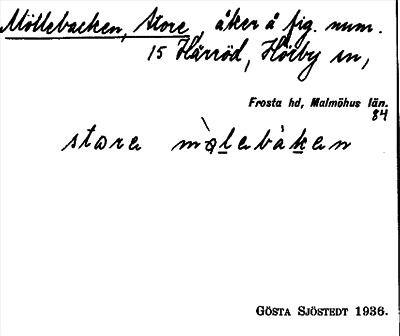 Möllebacken, Store, åker å fig. num.
15 Härröd, Hörby sn,
Frosta hd, Malmöhus län.
84
store mòlebàken
Gösta Sjöstedt 1936.